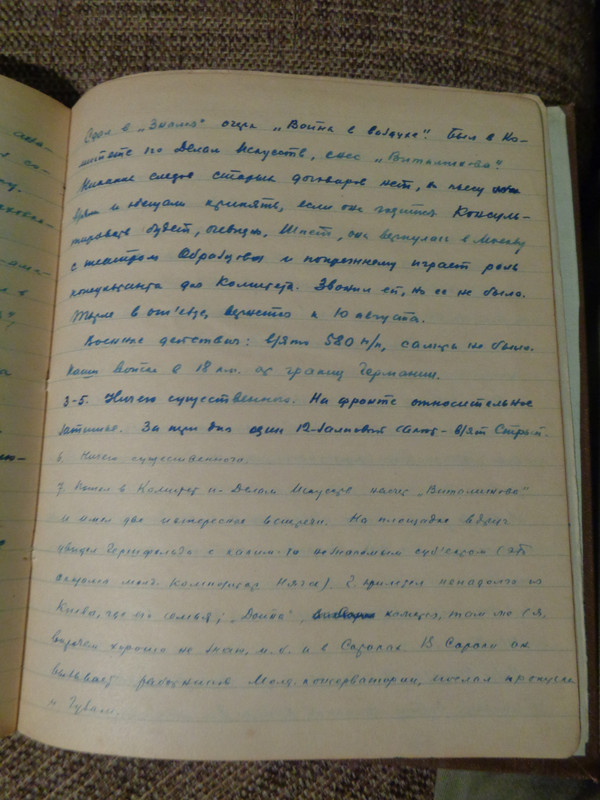 Сдал в „Знамя" очерк „Война в воздухе". Был в Ко-
митете по Делам Искусств,
Никаких следов старых договоров нет, а пьесу
и обещали принять, если она годится. Консуль-
тировать будет, очевидно, Шпет, она вернулась в Москву
с театром Образцова и по-прежнему играет роль
консультанта для Комитета. Звонил ей, но ее не было.
в от'езде, вернется к 10 августа.
Военные действия: взято 580 н/п, салюта не было.
Наши войска в 18 км. от границ Германии.
3-5. Ничего существенного. На фронте относительное
затишье. За три дня один 12-залповый салют - взят Стрый.
6. Ничего существенного.
7. Пошел в Комитет по Делам Искусств насчет
и имел две интересные встречи. На площадке вдруг
увидел с каким-то незнакомым суб'ектом
оказался молд. композитор Няга). приехал ненадолго из
Киева, где его семья; „Дойна", кажется, там же (я,
хорошо не знаю, м.б. и в Сороках). В Сороки он
вызывает работников Молд. консерватории, послал
и Гуван.